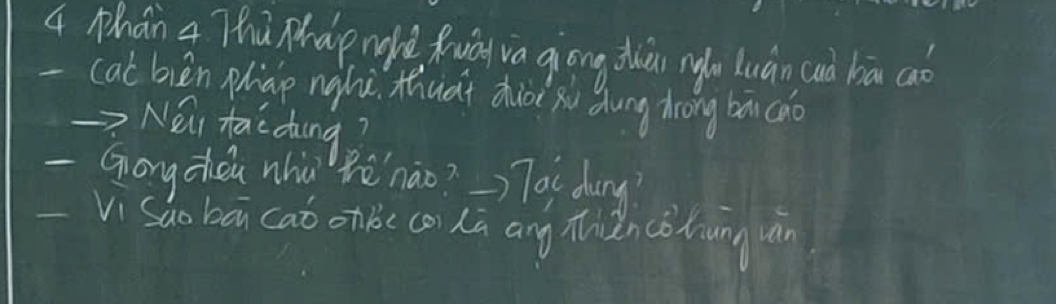 4 Phần 4. Thủ pháp nghệ thuật và giọng điệu nghị luận của bài cáo
- Các biện pháp nghệ thuật được sử dụng trong bài cáo
→ Nêu tác dụng?
- Giọng điệu như thế nào? → Tác dụng?
- Vì sao bài cáo được coi là áng thiên cổ hùng văn